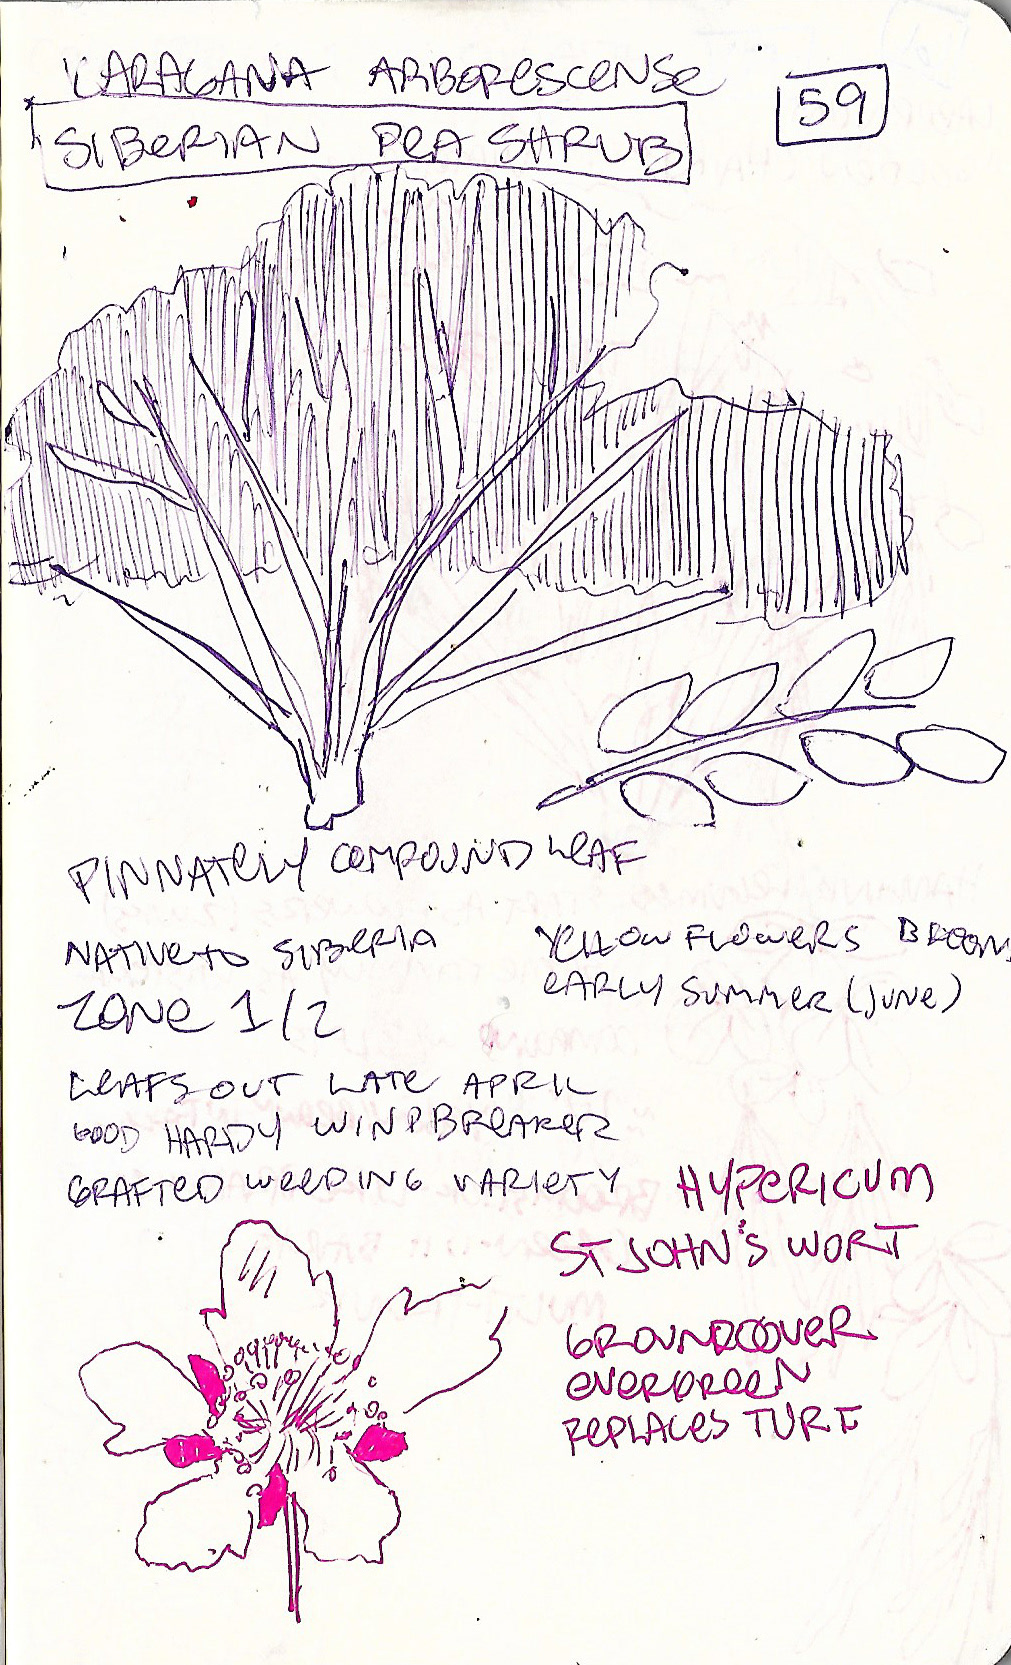 CARAGANA ARBORESCENSE
59
SIBERIAN PEA SHRUB
PINNATELY COMPOUND LEAF
NATIVE TO SIBERIA
ZONE 1/2
YELLOW FLOWERS BLOOM
EARLY SUMMER (JUNE)
LEAFS OUT LATE APRIL
GOOD HARDY WINDBREAKER
GRAFTED WEEPING VARIETY
HYPERICUM
ST JOHN'S WORT
GROUNDCOVER
EVERGREEN
REPLACES TURF